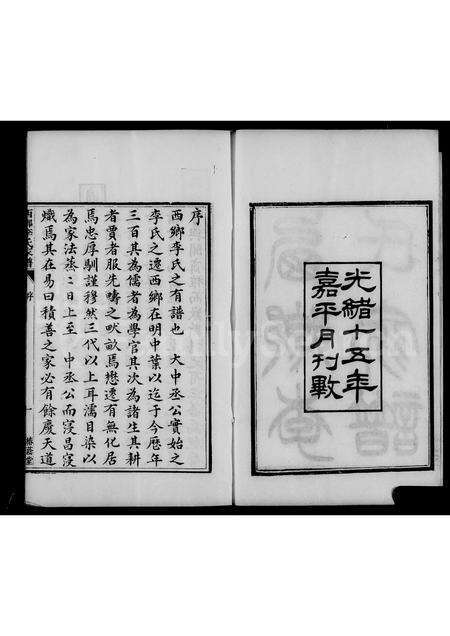 光緒十五年
嘉平月刊數
序
西鄉李氏之有譜也　大中丞公實始之
李氏之遷西鄉在明中葉以迄于今歷年
三百其為儒者為學官其次為諸生其耕
者賈者服先疇之畎畝焉懋遷有無化居
焉忠厚馴謹穆然三代以上耳濡目染以
為家法蒸〻日上至　中丞公而寖昌寖
熾焉其在易曰積善之家必有餘慶天道
序
一